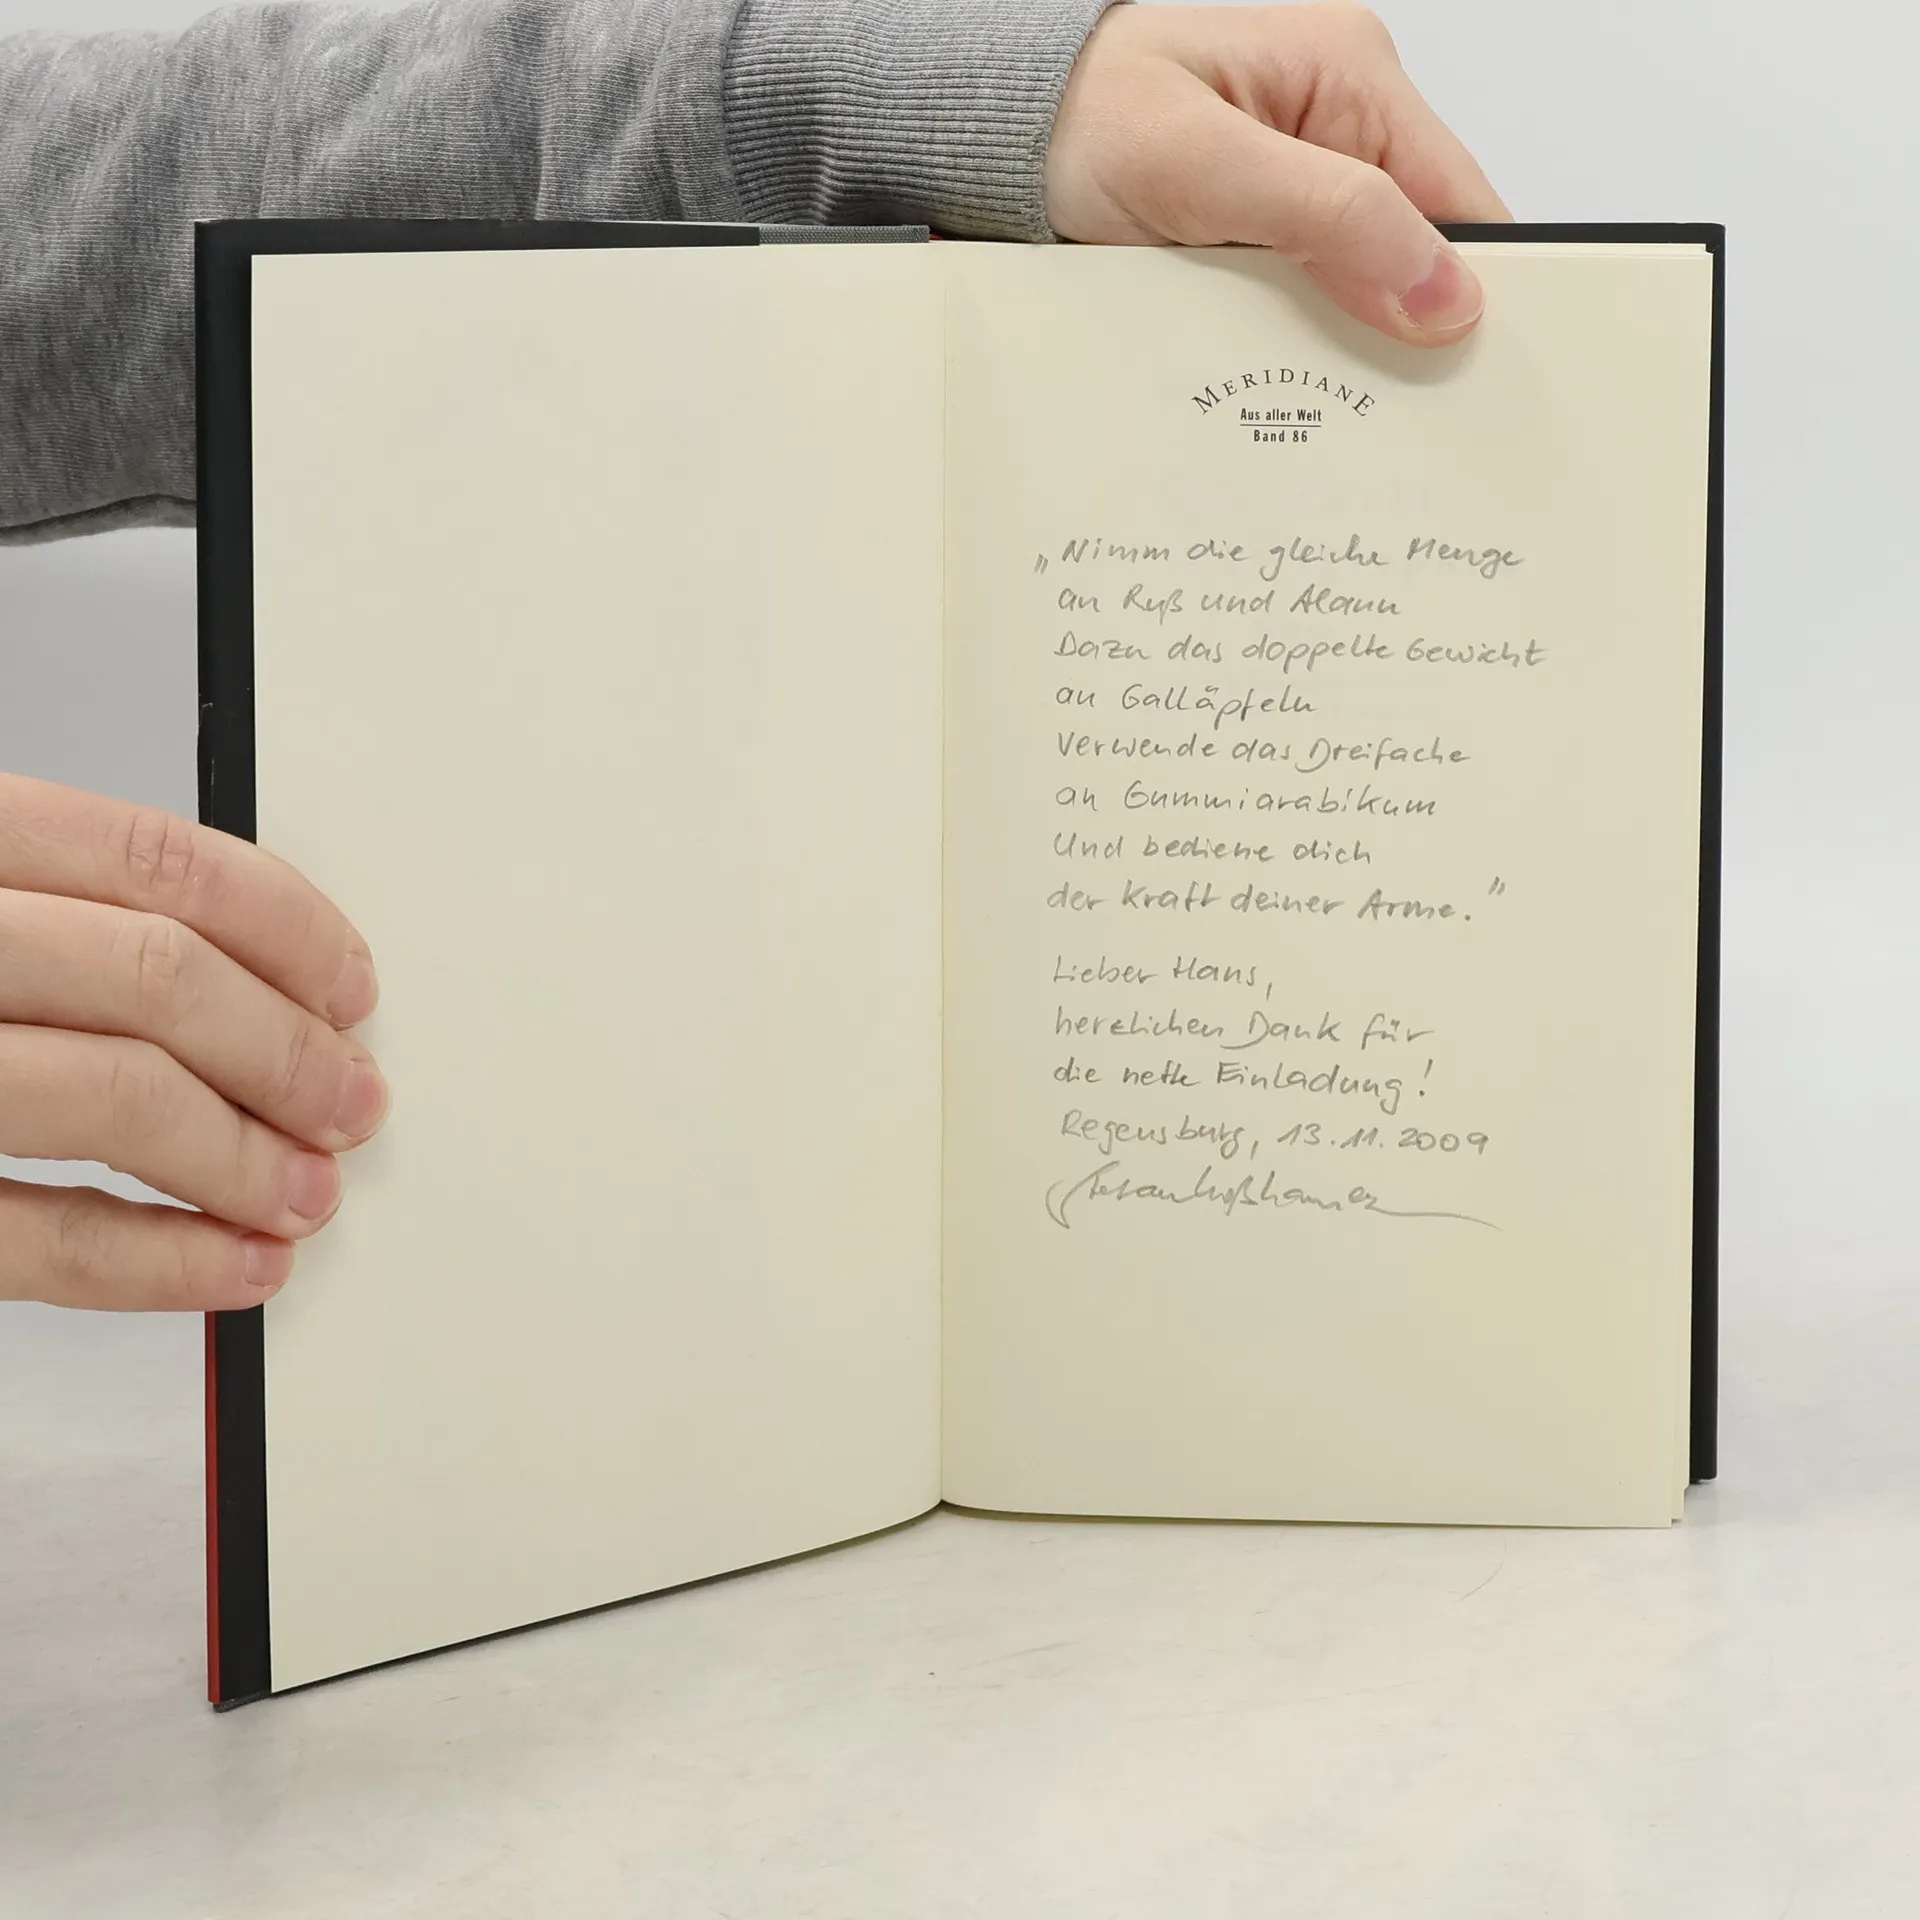 MERIDIANE
Aus aller Welt
Band 86
„Nimm die gleiche Menge
an Ruß und Alaun
Dazu das doppelte Gewicht
an Galläpfeln
Verwende das Dreifache
an Gummiarabikum
Und bediene dich
der Kraft deiner Arme."
Lieber Hans,
herzlichen Dank für
die nette Einladung!
Regensburg, 13.11.2009